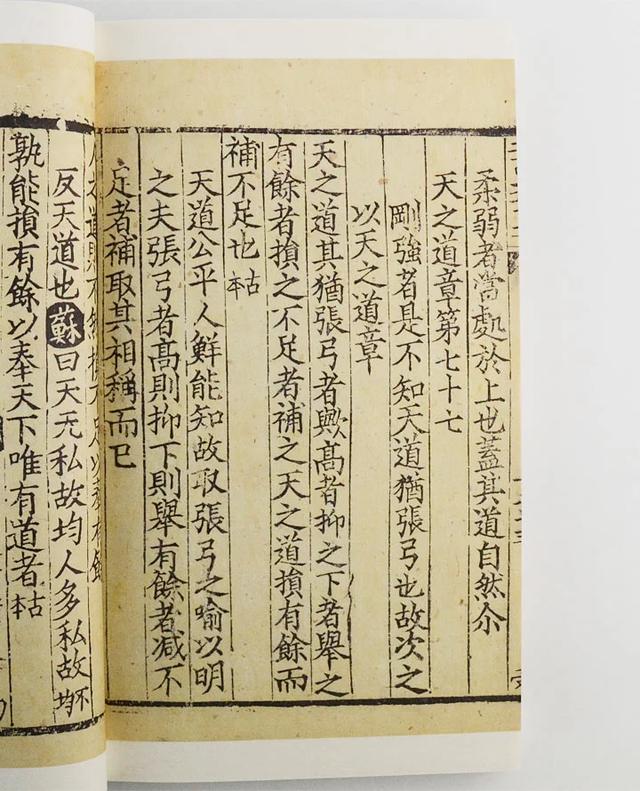 柔弱者當處於上也蓋其道自然尒
天之道章第七十七
剛強者是不知天道猶張弓也故次之
以天之道章
天之道其猶張弓者歟高者抑之下者舉之
有餘者損之不足者補之天之道損有餘而
補不足也古本
天道公平人鮮能知故取張弓之喻以明
之夫張弓者高則抑下則舉有餘者减不
足者補取其相稱而已
人之道則不然損不足以奉有餘
反天道也蘇曰天无私故均人多私故不均
孰能損有餘以奉天下唯有道者古本